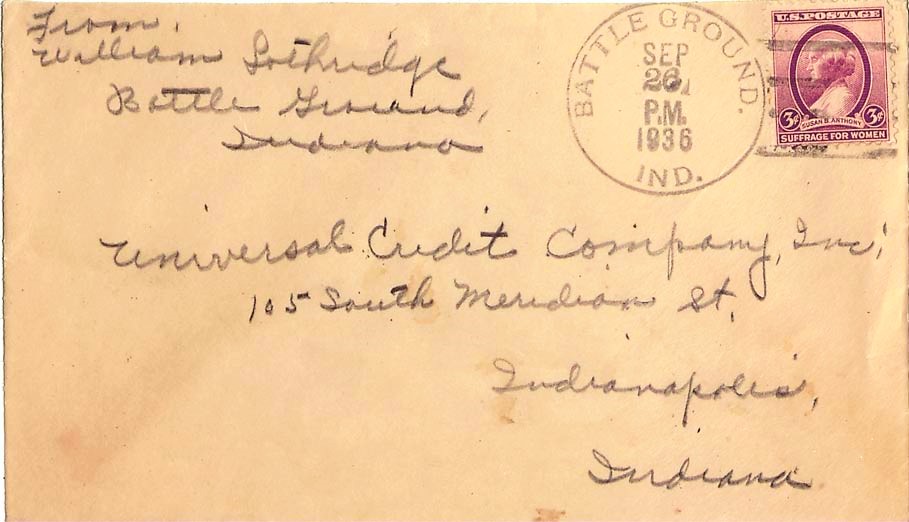 From:
William Lothridge
Battle Ground,
Indiana
BATTLE GROUND.
SEP
26
P.M.
1936
IND.
U.S. POSTAGE
3¢ 3¢
SUSAN B. ANTHONY
SUFFRAGE FOR WOMEN
Universal Credit Company, Inc,
105 South Meridian St,
Indianapolis,
Indiana